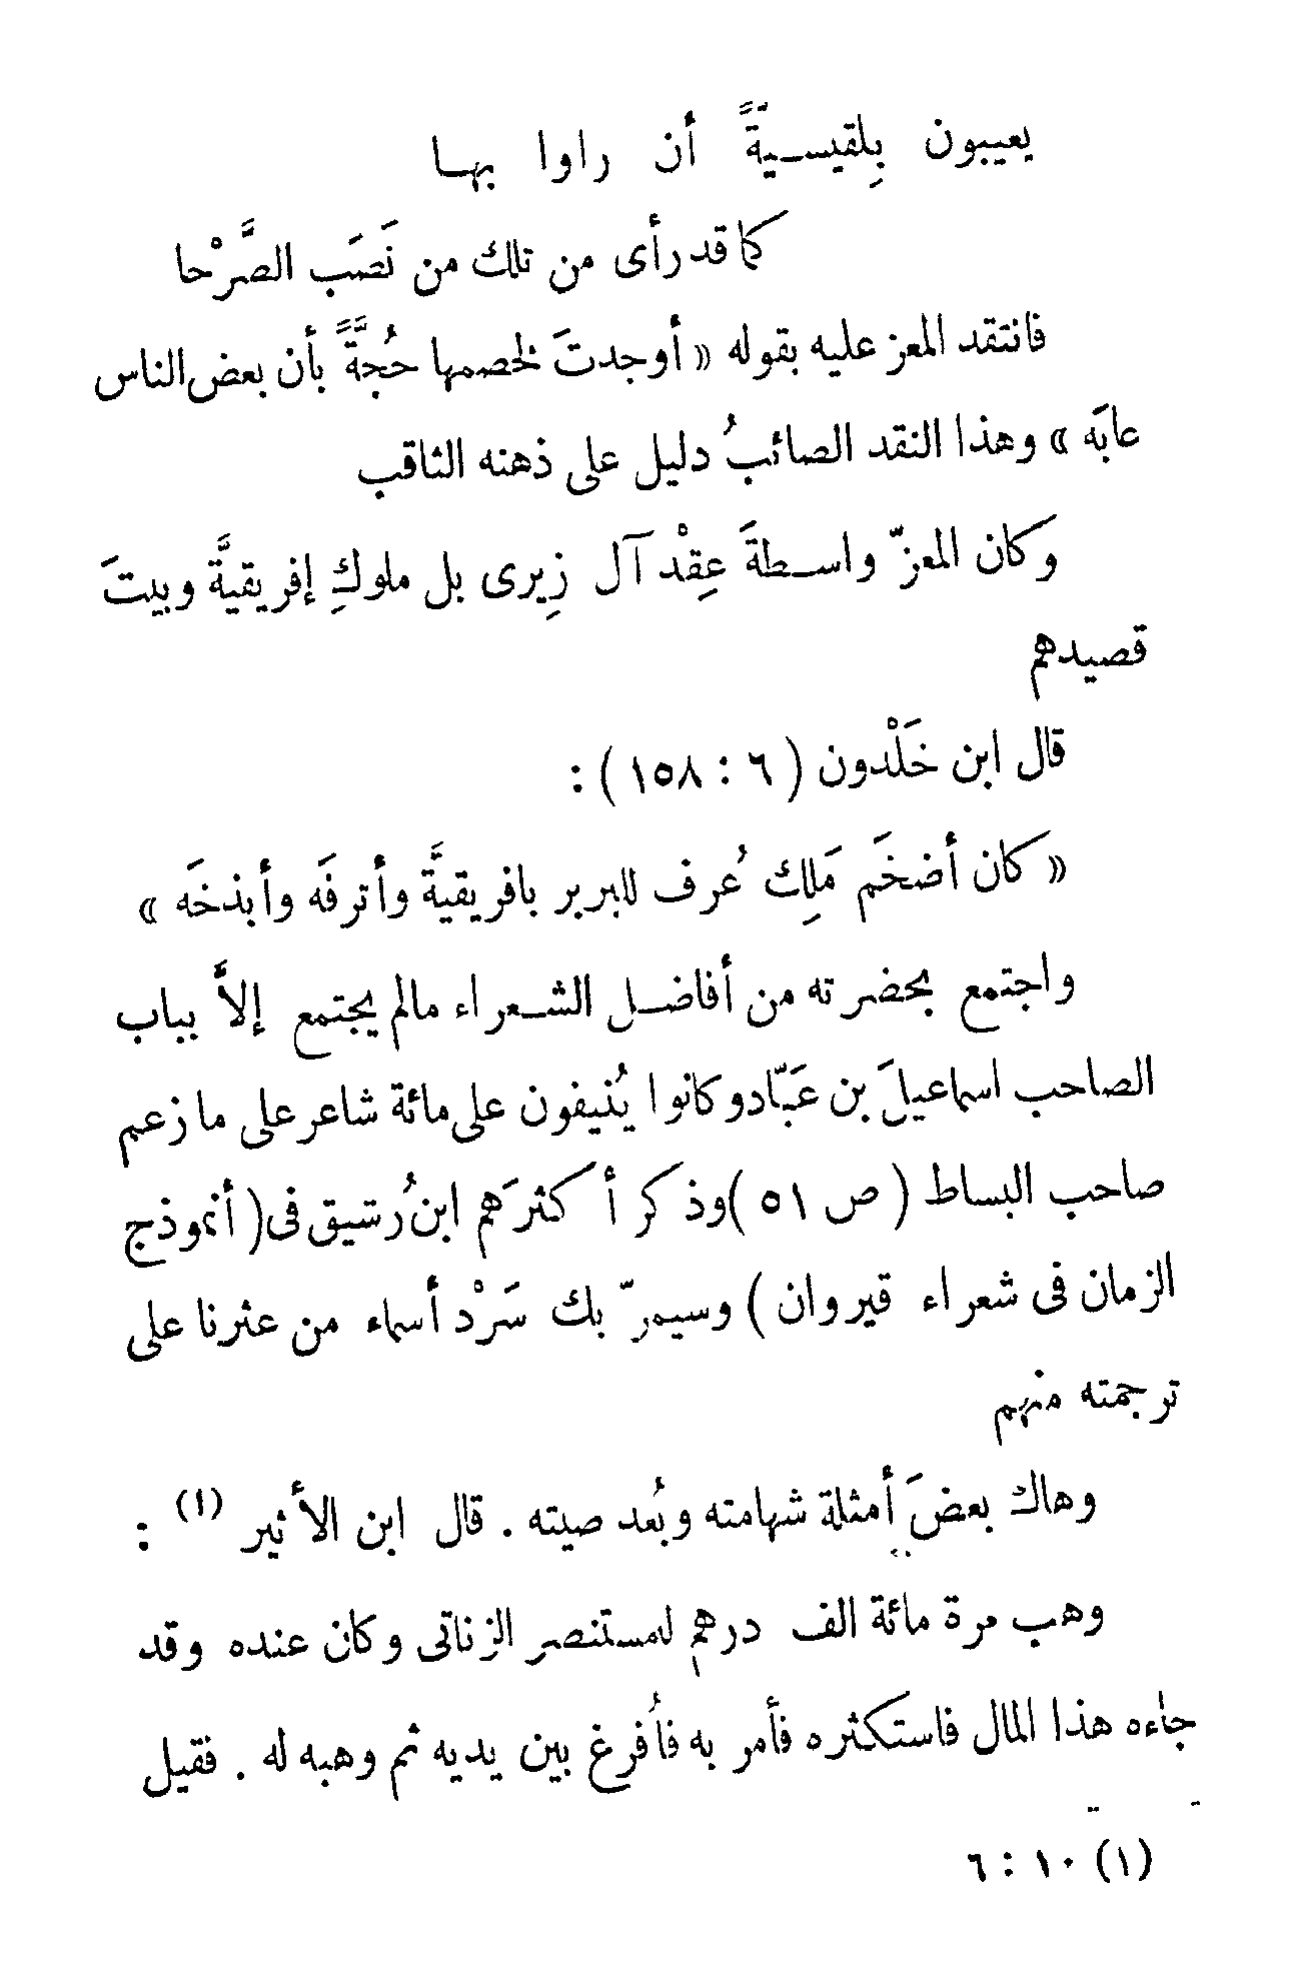 يعيبون بِلقيسيةً أن راوا بها
كما قد رأى من تلك من نَصَب الصَّرْحا
فانتقد المعز عليه بقوله « أوجدتَ لخصمها حُجَّةً بأن بعض الناس
عابَه » وهذا النقد الصائبُ دليل على ذهنه الثاقب
وكان المعزّ واسطةَ عِقْد آل زِيرى بل ملوكِ إفريقيَّة وبيتَ
قصيدهم
قال ابن خَلْدون ( ٦ : ١٥٨ ) :
« كان أضخَم مَلِك عُرف للبربر بافريقيَّة وأترفَه وأبذخَه »
واجتمع بحضرته من أفاضل الشعراء مالم يجتمع إلاَّ بباب
الصاحب اسماعيلَ بن عَبّاد وكانوا يُنيفون على مائة شاعر على ما زعم
صاحب البساط ( ص ٥١ ) وذكر أكثرَهم ابن رُشيق فى ( أنموذج
الزمان فى شعراء قيروان ) وسيمرّ بك سَرْد أسماء من عثرنا على
ترجمته منهم
وهاك بعضَ أمثلة شهامته وبُعد صيته . قال ابن الأثير (١) :
وهب مرة مائة الف درهم لمستنصر الزناتى وكان عنده وقد
جاءه هذا المال فاستكثره فأمر به فأُفرغ بين يديه ثم وهبه له . فقيل
(١) ١٠ : ٦